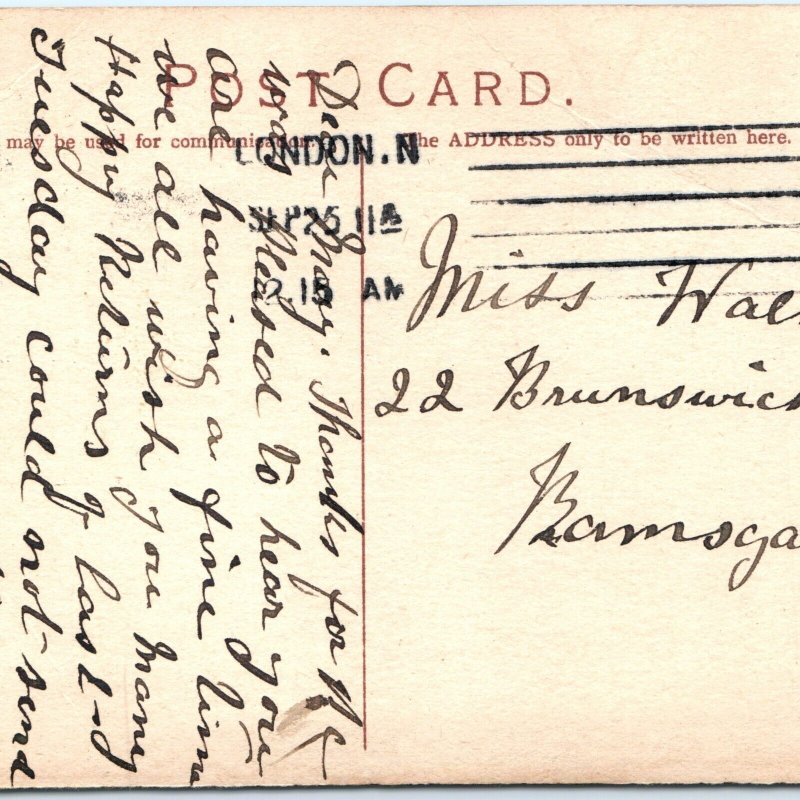 POST CARD.
may be used for communication.
The ADDRESS only to be written here.
LONDON. N
SEP 25 11 A
12.15 AM
Miss Wal
22 Brunswick
Ramsga
Dear May. Thanks for P.C
was pleased to hear you
are having a fine time
we all wish you many
Happy Returns of last
Tuesday could not send